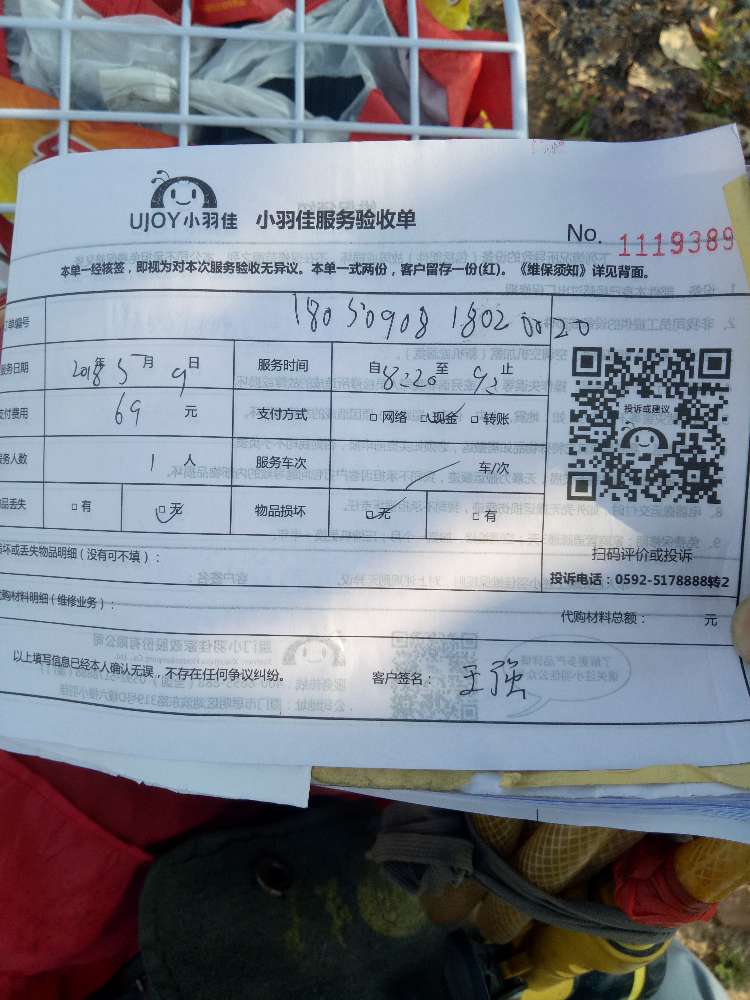 UJOY小羽佳 小羽佳服务验收单
No. 1119389
本单一经核签,即视为对本次服务验收无异议。本单一式两份,客户留存一份(红)。《维保须知》详见背面。
单编号 180509081802 0020
服务日期 2018年5月9日 服务时间 自8:20至9:止
支付费用 69元 支付方式 □网络 □现金 □转账
服务人数 1人 服务车次 车/次
品丢失 □有 □无 物品损坏 □无 □有
投诉或建议
扫码评价或投诉
投诉电话:0592-5178888转2
坏或丢失物品明细(没有可不填):
代购材料明细(维修业务): 代购材料总额: 元
以上填写信息已经本人确认无误,不存在任何争议纠纷。 客户签名: 王强